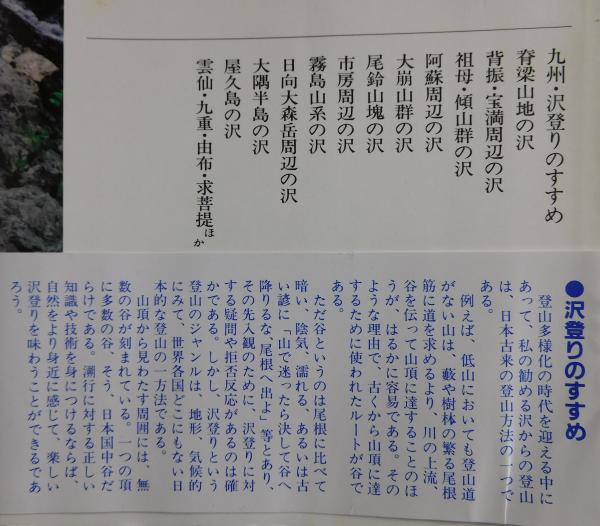 九州・沢登りのすすめ
脊梁山地の沢
背振・宝満周辺の沢
祖母・傾山群の沢
阿蘇周辺の沢
大崩山群の沢
尾鈴山塊の沢
市房周辺の沢
霧島山系の沢
日向大森岳周辺の沢
大隅半島の沢
屋久島の沢
雲仙・九重・由布・求菩提ほか
●沢登りのすすめ
登山多様化の時代を迎える中に
あって、私の勧める沢からの登山
は、日本古来の登山方法の一つで
ある。
例えば、低山においても登山道
がない山は、藪や樹林の繁る尾根
筋に道を求めるより、川の上流、
谷を伝って山頂に達することのほ
うが、はるかに容易である。その
ような理由で、古くから山頂に達
するために使われたルートが谷で
ある。
ただ谷というのは尾根に比べて
暗い、陰気、濡れる、あるいは古
い諺に「山で迷ったら決して谷へ
降りるな、尾根へ出よ」等とあり、
その先入観のために、沢登りに対
する疑問や拒否反応があるのは確
かである。しかし、沢登りという
登山のジャンルは、地形、気候的
にみて、世界各国どこにもない日
本的な登山の一方法である。
山頂から見わたす周囲には、無
数の谷が刻まれている。一つの頂
に多数の谷、そう、日本国中谷だ
らけである。溯行に対する正しい
知識や技術を身につけるならば、
自然をより身近に感じて、楽しい
沢登りを味わうことができるであ
ろう。